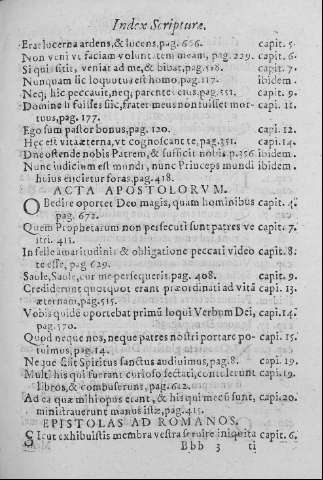 Index Scripture.
Erat lucerna ardens, & lucens, pag. 606. capit. 5.
Non veni vt faciam volunt. tem meam, pag. 229. capit. 6.
Si qui sitit, veniat ad me, & bibat, pag. 518. capit. 7.
Nunquam sic loquutus est homo. pag. 117. ibidem.
Neq; hic peccauit, neq; parentes eius, pag. 551. capit. 9.
Domine si fuisses hic, frater meus non fuisset mor- capi. 11.
tuus, pag. 177.
Ego sum pastor bonus, pag. 120. capi. 12.
Hęc est vita æterna, vt cognoscant te, pag. 351. capi. 14.
Dne ostende nobis Patrem, & sufficit nobis p. 356 ibidem.
Nunc iudicium est mundi, nunc Princeps mundi ibidem.
huius eiicietur foras, pag. 418.
ACTA APOSTOLORVM.
OBedire oportet Deo magis, quam hominibus capit. 4.
pag. 672.
Quem Prophetarum non persecuti sunt patres ve capit. 7.
stri. 411.
In felle amaritudinis & obligatione peccati video capit. 8.
te esse, pag. 629.
Saule, Saule, cur me persequeris. pag. 408. capit. 9.
Crediderunt quotquot erant præordinati ad vitã capi. 13.
æternam, pag. 515.
Vobis quidẽ oportebat primũ loqui Verbum Dei, capi. 14.
pag. 570.
Quod neque nos, neque patres nostri portare po- capi. 15.
tuimus, pag. 14.
Neque si sit Spiritus sanctus audiuimus, pag. 8. capi. 19.
Multi his qui fuerant curiosa sectati, contulerunt capi. 19.
libros, & combuserunt, pag. 612.
Ad ea quæ mihi opus erant, & his qui mecũ sunt, capi. 20.
ministrauerunt manus istæ, pag. 415.
EPISTOLAS AD ROMANOS.
SIcut exhibuistis membra vestra seruire iniquita capit. 6.
Bbb 3 ti